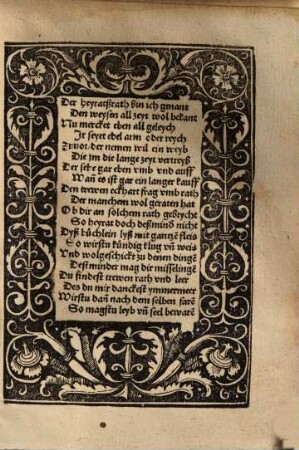 Der heyratßrath bin ich genant
Den weysen all zeyt wol bekant
Nu mercket eben all geleych
Ir seyet edel arm oder reych
Zuuor der nemen wil ein weyb
Die jm die lange zeyt vertreyb
Der sehe gar eben vmb vnd auff
Wañ es ist gar ein langer kauff
Den trewen eckhart frag vmb rath
Der manchem wol geraten hat
Ob dir an solchem rath gebrecht
So heyrat doch deßmindß nicht
Dyß büchlein lyß mit gantzẽ fleis
So wirstu kündig klug vñ weis
Vnd wolgeschickt zu denen dingẽ
Deßminder mag dir misselingẽ
Du findest trewen rath vnd leer
Des du mir danckest ymmermeer
Wirstu dañ nach dem selben farẽ
So magstu leyb vñ seel bewarẽ